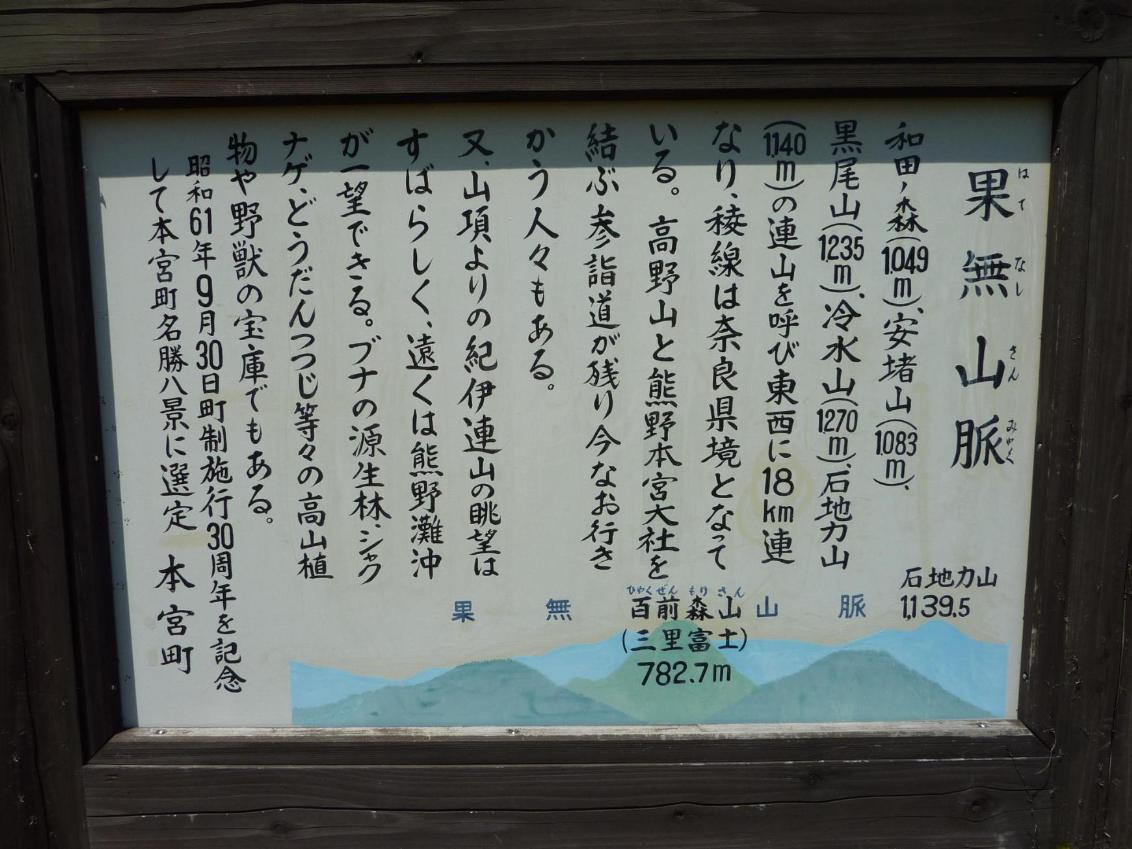 果無山脈
はてなしさんみゃく
和田ノ森(1.049m)、安堵山(1.083m)、
黒尾山(1235m)、冷水山(1270m)、石地力山
(1140m)の連山を呼び東西に18km連
なり、稜線は奈良県境となって
いる。高野山と熊野本宮大社を
結ぶ参詣道が残り今なお行き
かう人々もある。
又、山項よりの紀伊連山の眺望は
すばらしく、遠くは熊野灘沖
が一望できる。ブナの源生林、シャク
ナゲ、どうだんつつじ等々の高山植
物や野獣の宝庫でもある。
昭和61年9月30日町制施行30周年を記念
して本宮町名勝八景に選定 本宮町
石地力山
1,139.5
果無山脈
ひゃくぜんもりさん
百前森山
(三里富士)
782.7m